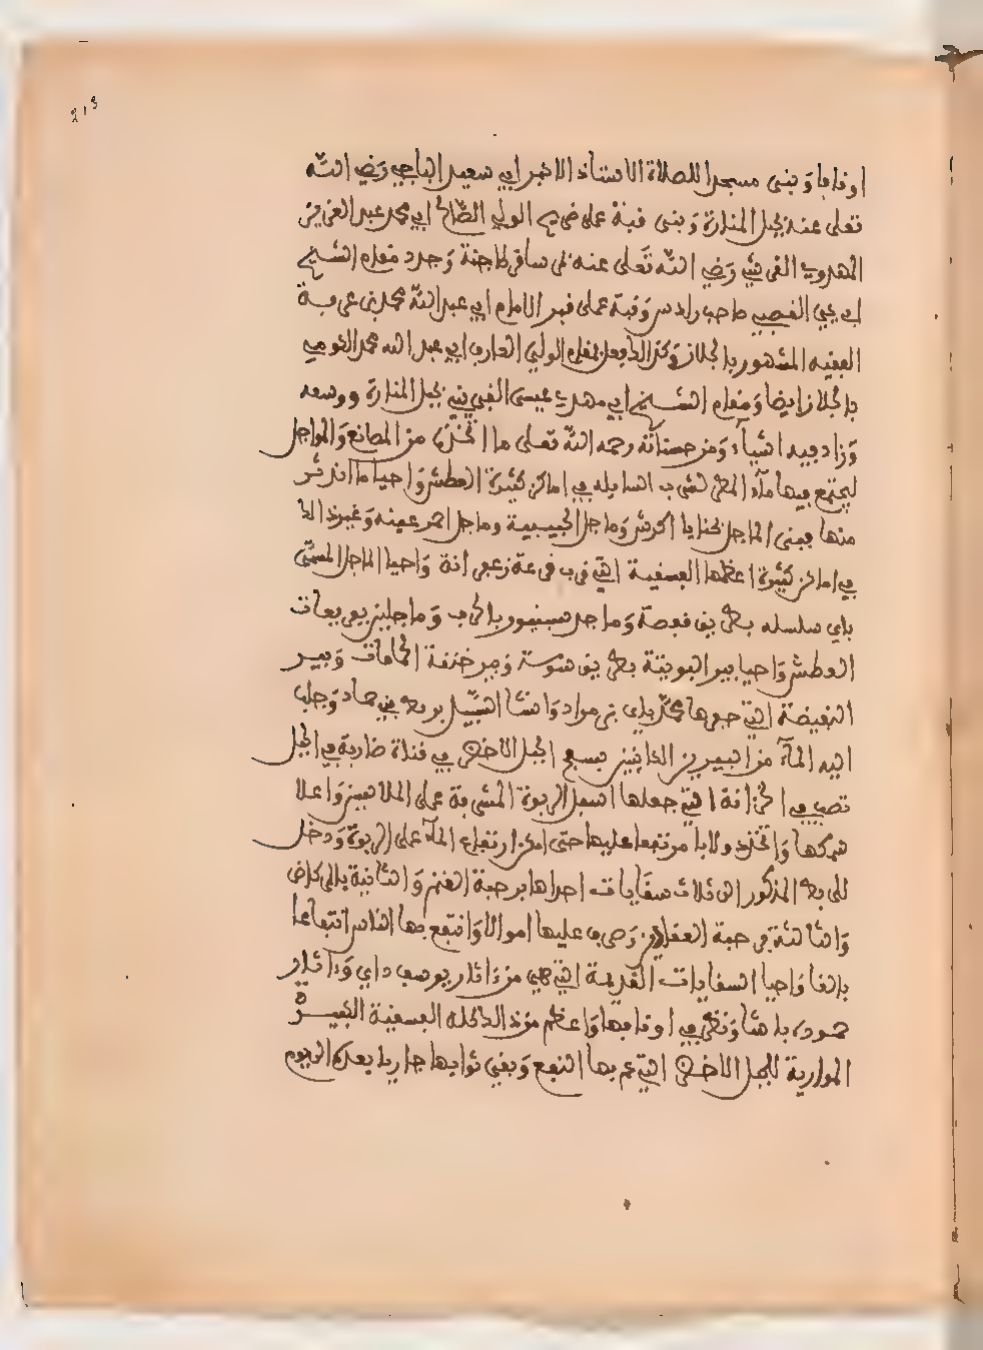 213
اوقافا وَبنى مسجدا للصلاة الاستاذ الاكبر ابي سعيد الباجي رَضي اللّه
تعلى عنه بجبل المنارة وَبنى قبة على ضريح الولي الصّالح ابي محمد عبد العزيز
المهدوي القرشي رَضي اللّه تَعلى عنه بمرسا قرطاجنة وَجدد مقام الشيخ
ابي يحيى صاحب رادس وَقبة على قبر الامام ابي عبد اللّه محمد بن عرفة
الفقيه المشهور بالجلاز وَكذا بمقام الولي العارف ابي عبد الله محمد
بالجلاز ايضا وَمقام الشيخ ابي مهدي عيسى بجبل المنارة ووسعه
وَزاد فيه اشياء وَمن حسناته رحمه اللّه تعلى ما اتخذه من المصانع وَالمواجل
ليجتمع فيها ماء المطر لشرب السابله في اماكن كثيرة العطش وَاحيا ما اندثر
منها فبنى الماجل بحنايا وَماجل الحبيبية وماجل وَغير ذالك
في اماكن كثيرة اعظمها الفسقية التي قرب وَاحيا الماجل المسمّى
باي سلسله بطريق قفصة وَماجل بالحرب وَماجلين
العطش وَاحيا بير البويتة بطريق سوسة وَبير خنقة الحمامات وَبير
النفيضة التي حفرها محمّد باي بن مراد وَانشا السّبيل وَجلب
اليه الماء من البيرين الذانين بسفح الجبل الاخضر في قناة ضاربة في الجبل
تصب في الخزانة التي جعلها اسفل الربوة المشرفة على الملاسين وَاعلا
سمكها وَاتخذ دولابا مرتفعا عليها حتى امكن ارتفاع الماء على الربوة وَدخل
المذكور الى ثلاث سقايات احداها برحبة الغنم وَالثانية بالمركاض
وَالثالثة وَصرف عليها اموالا وَانتفع بها الناس انتفاعا
بالغا وَاحيا السقايات القديمة التي هي من ءاثار يوسف داي وَءاثار
حموده باشا وَنظر في اوقافها وَاعظم من ذالك كله الفسقية الكبيرة
الموارية للجبل الاخضر التي عم بها النفع وَبقي ثوابها جاريا بعده الى يوم